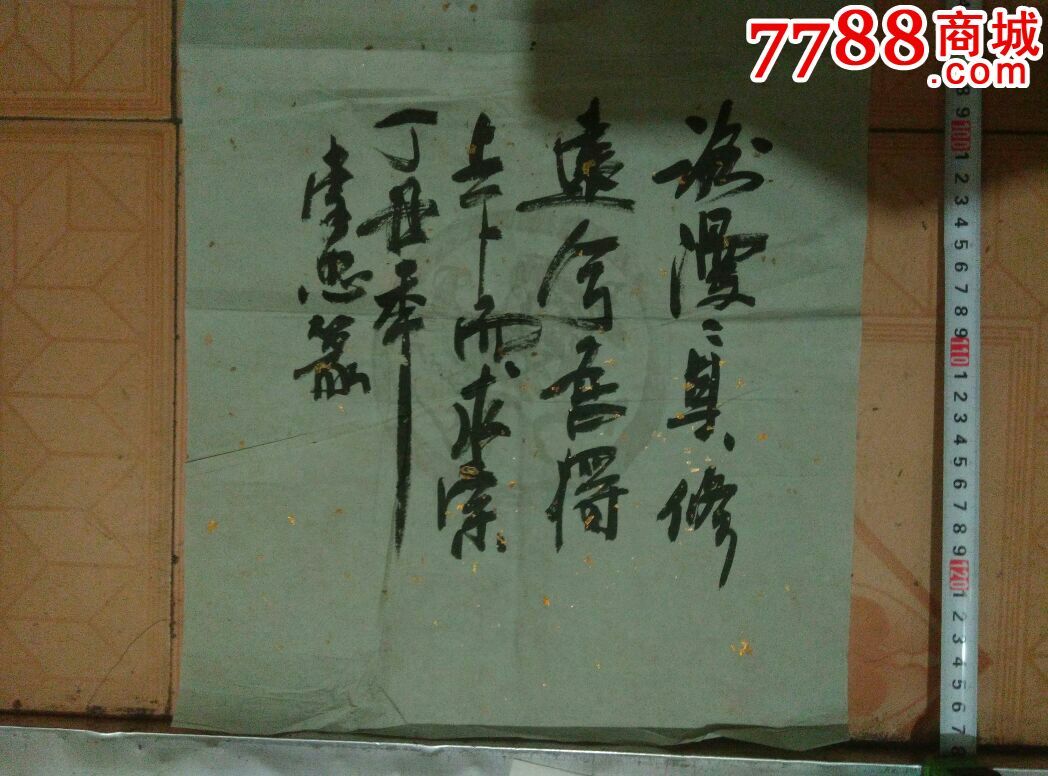 7788商城
.com
路漫〻其修
遠兮吾將
上下而求索
丁丑年
李思
8 9 100 1 2 3 4 5 6 7 8 9 110 1 2 3 4 5 6 7 8 9 120 1 2 3 4 5 6 7 8